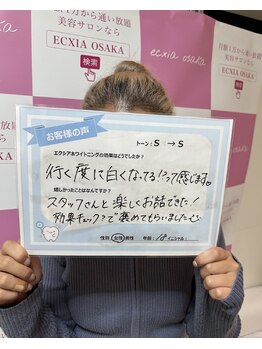 月額1万から通い放題
美容サロンなら
ECXIA OSAKA
検索
ecxia osaka
お客様の声
トーン：S → S
エクシアホワイトニングの効果はどうでしたか？
行く度に白くなってる！って感じます。
嬉しかったことはなんですか？
スタッフさんと楽しくお話できた！
効果チェックで褒めてもらいました
性別 女性 男性 年齢：18 イニシャル：